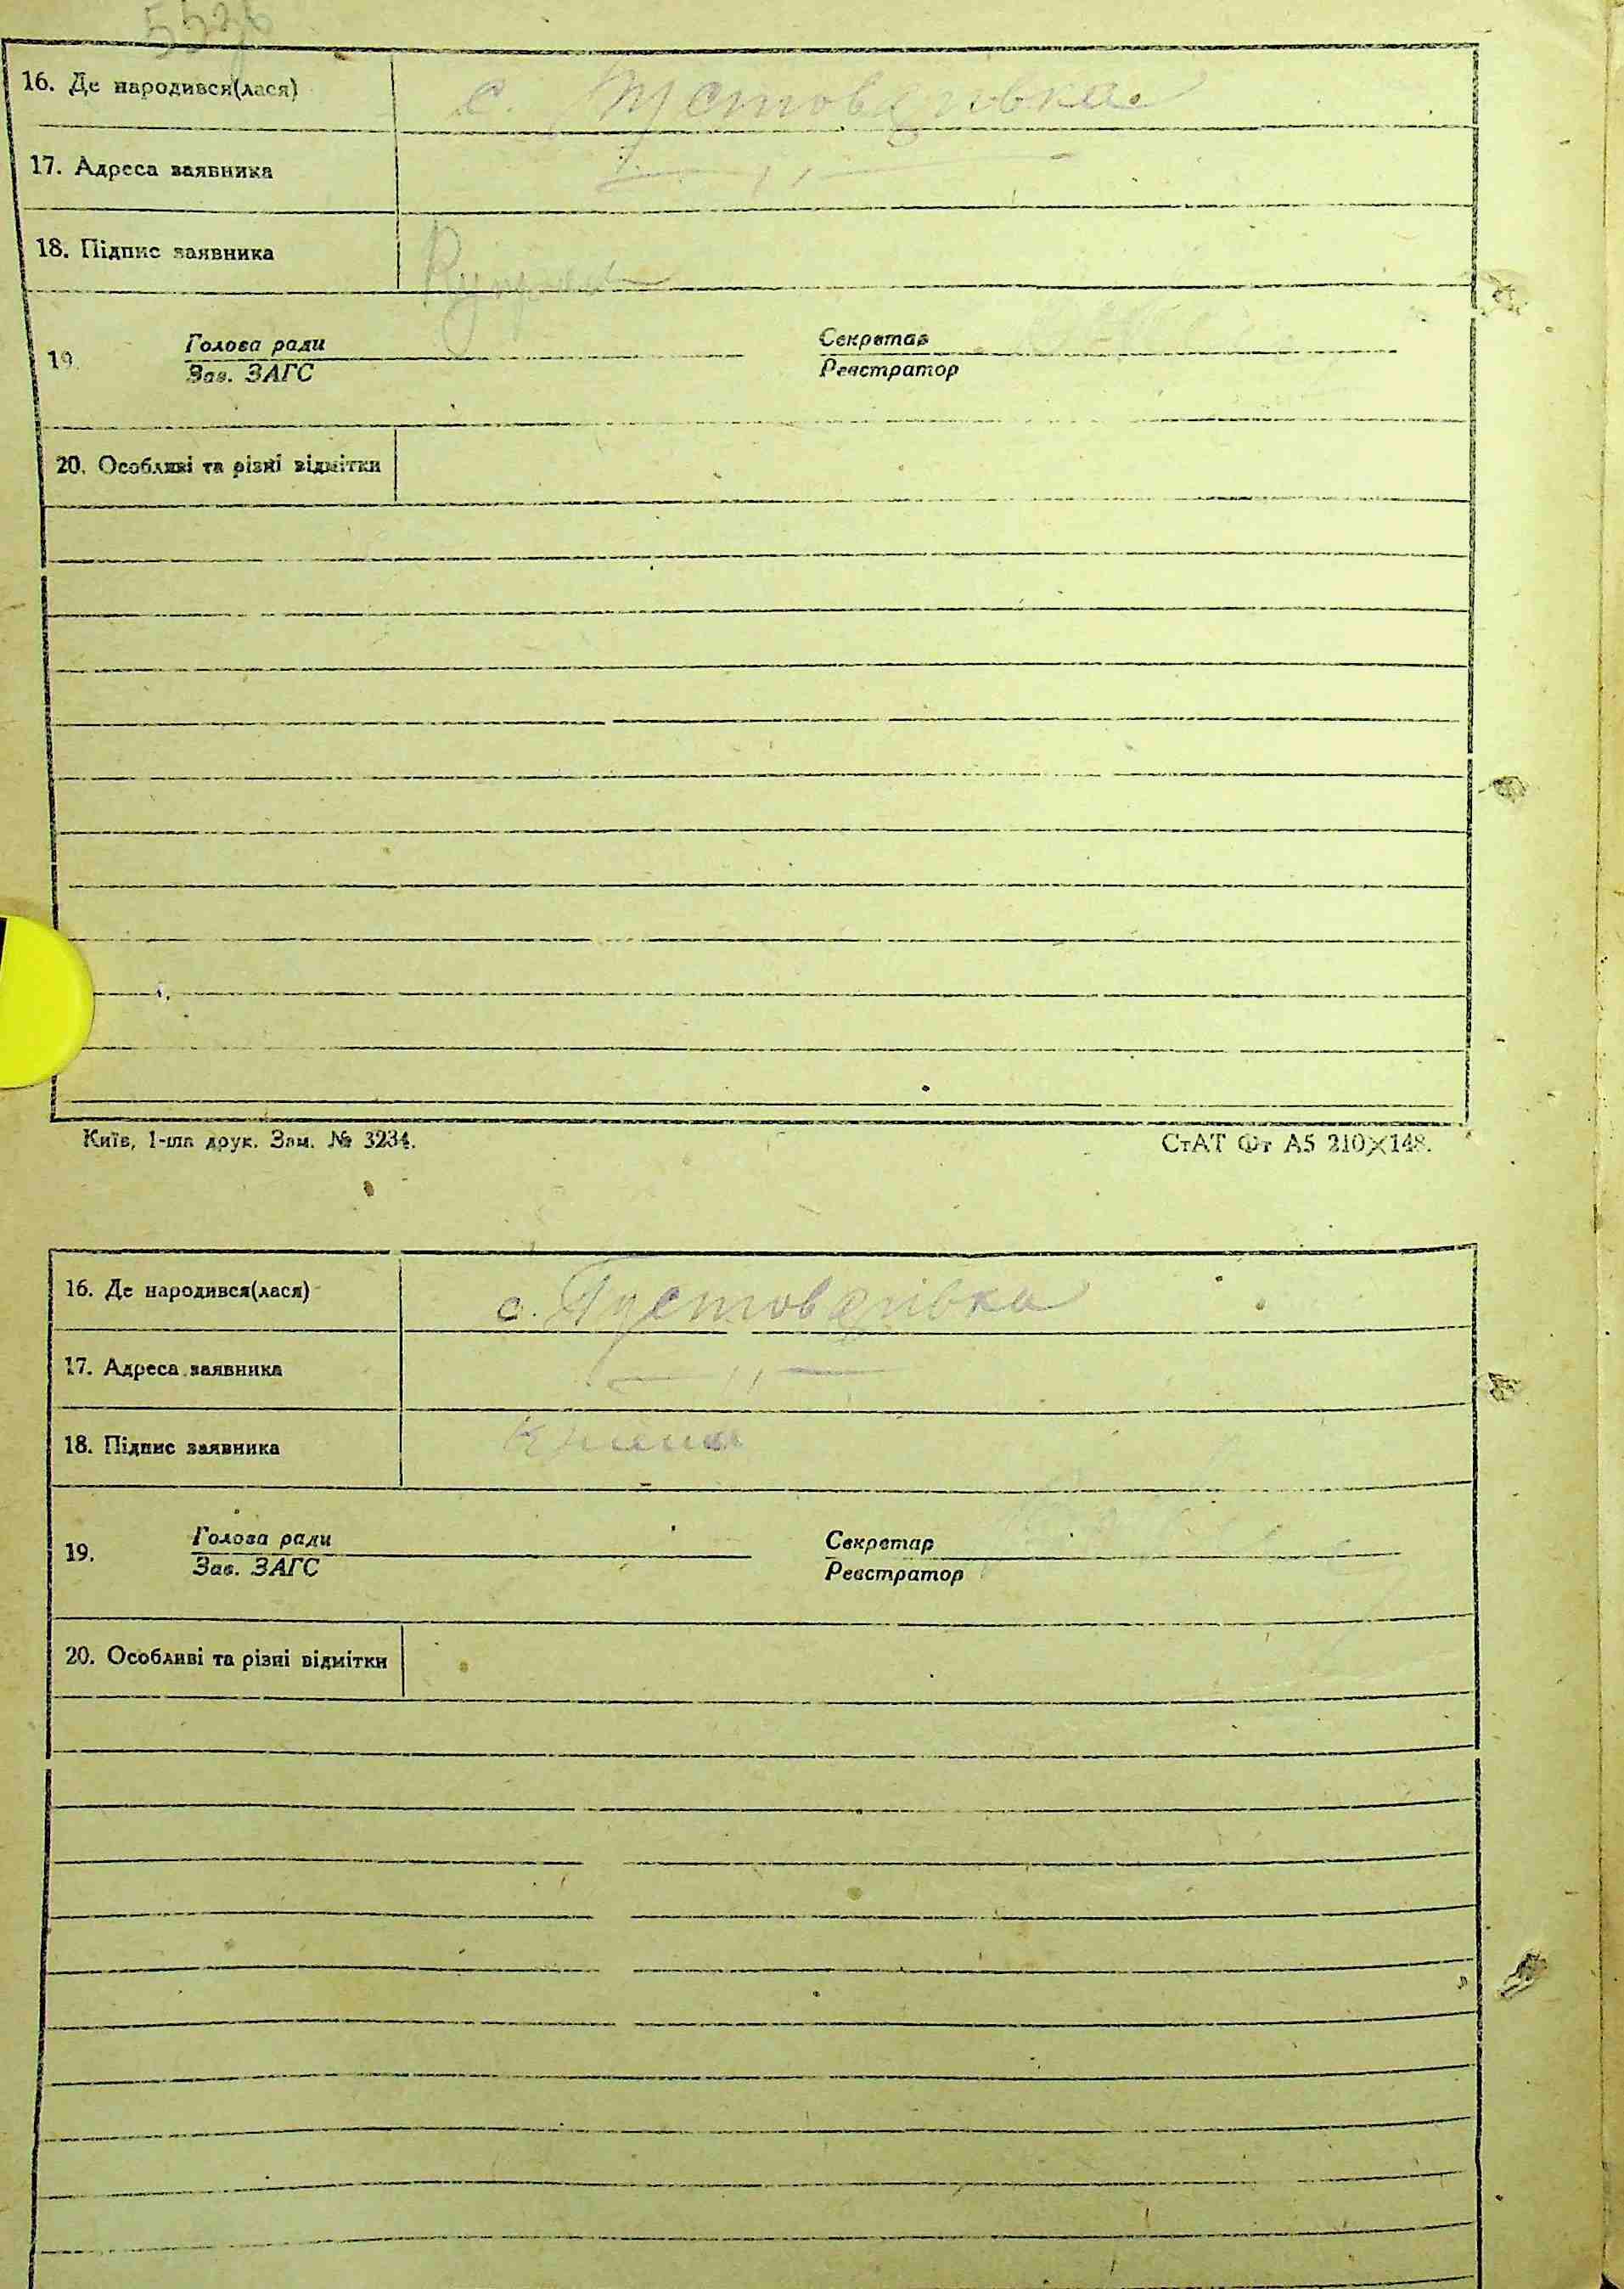 16. Де народився(лася) с. Пустоварівка
17. Адреса заявника — „ —
18. Підпис заявника
19. Голова ради Секретар
Зав. ЗАГС Реєстратор
20. Особливі та різні відмітки
Київ, 1-ша друк. Зам. № 3234. СтАТ Фт А5 210×148.
16. Де народився(лася) с. Пустоварівка
17. Адреса заявника — „ —
18. Підпис заявника
19. Голова ради Секретар
Зав. ЗАГС Реєстратор
20. Особливі та різні відмітки